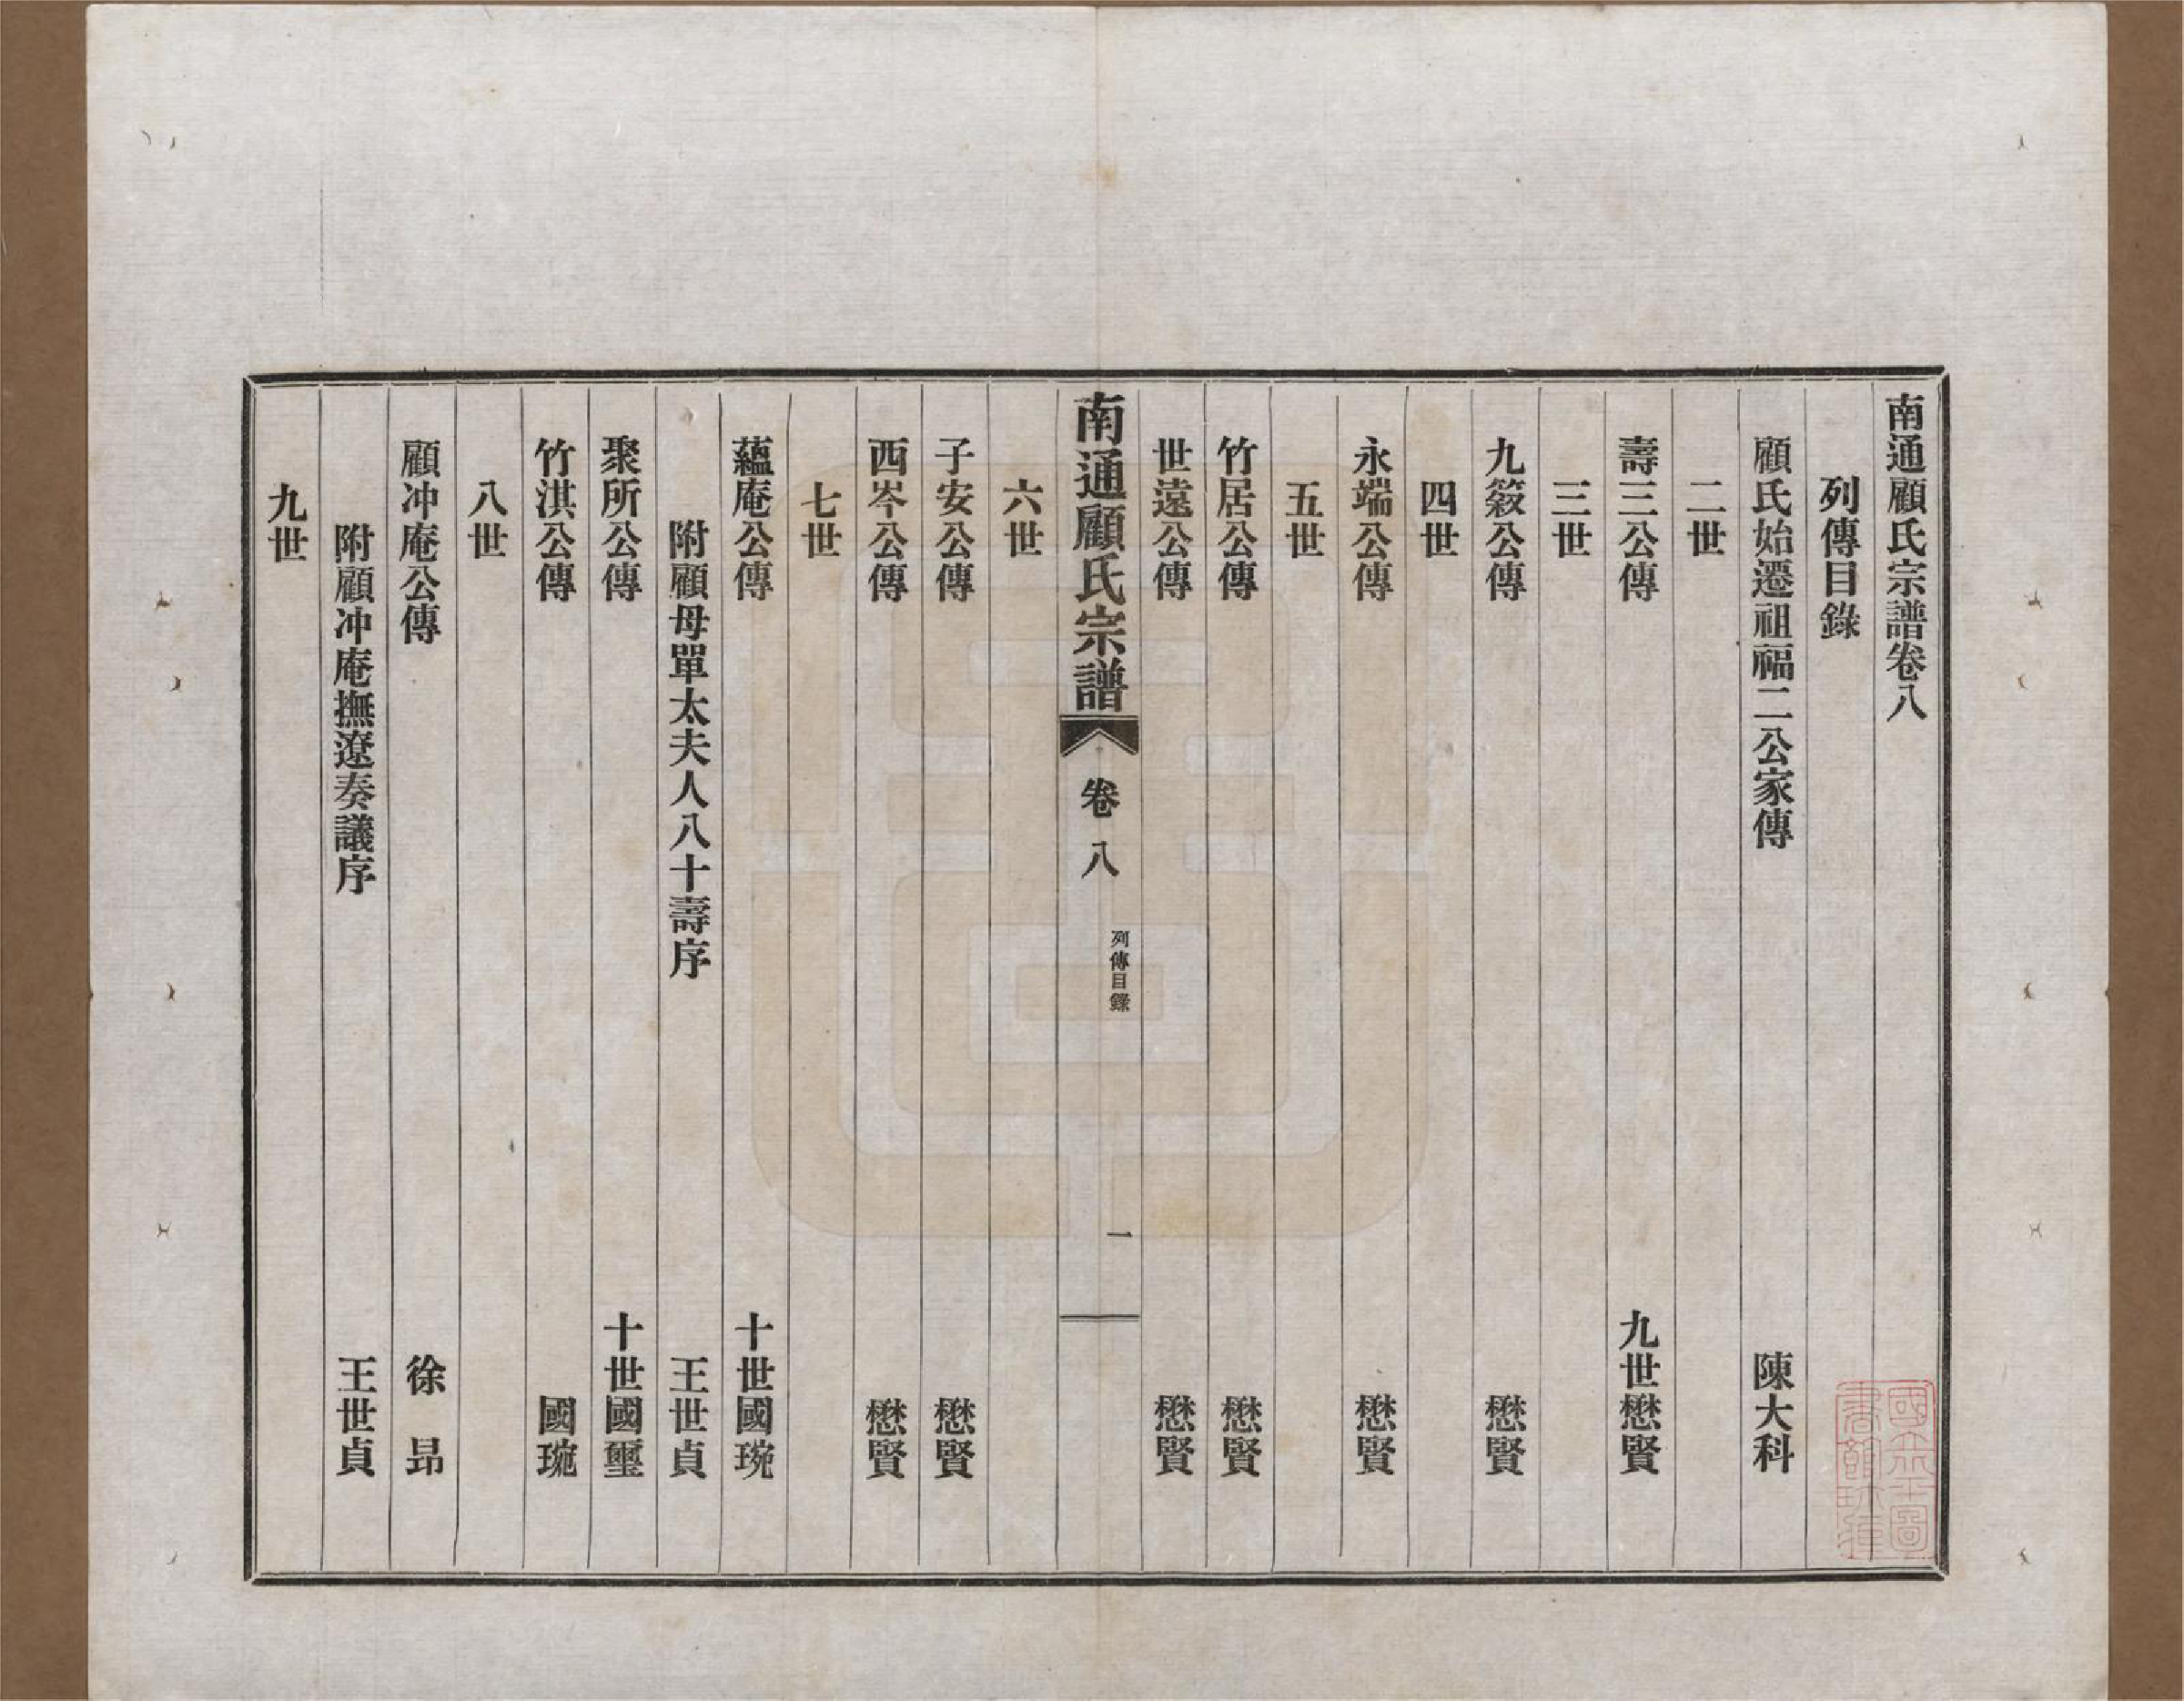 南通顧氏宗譜卷八
列傳目錄
顧氏始遷祖福二公家傳 陳大科
二世
壽三公傳 九世懋賢
三世
九敘公傳 懋賢
四世
永端公傳 懋賢
五世
竹居公傳 懋賢
世遠公傳 懋賢
南通顧氏宗譜 卷八 列傳目錄 一
六世
子安公傳 懋賢
西岑公傳 懋賢
七世
蘊庵公傳 十世國琬
附顧母單太夫人八十壽序 王世貞
聚所公傳 十世國璽
竹淇公傳 國琬
八世
顧冲庵公傳 徐昂
附顧冲庵撫遼奏議序 王世貞
九世
國立北平圖書館珍藏